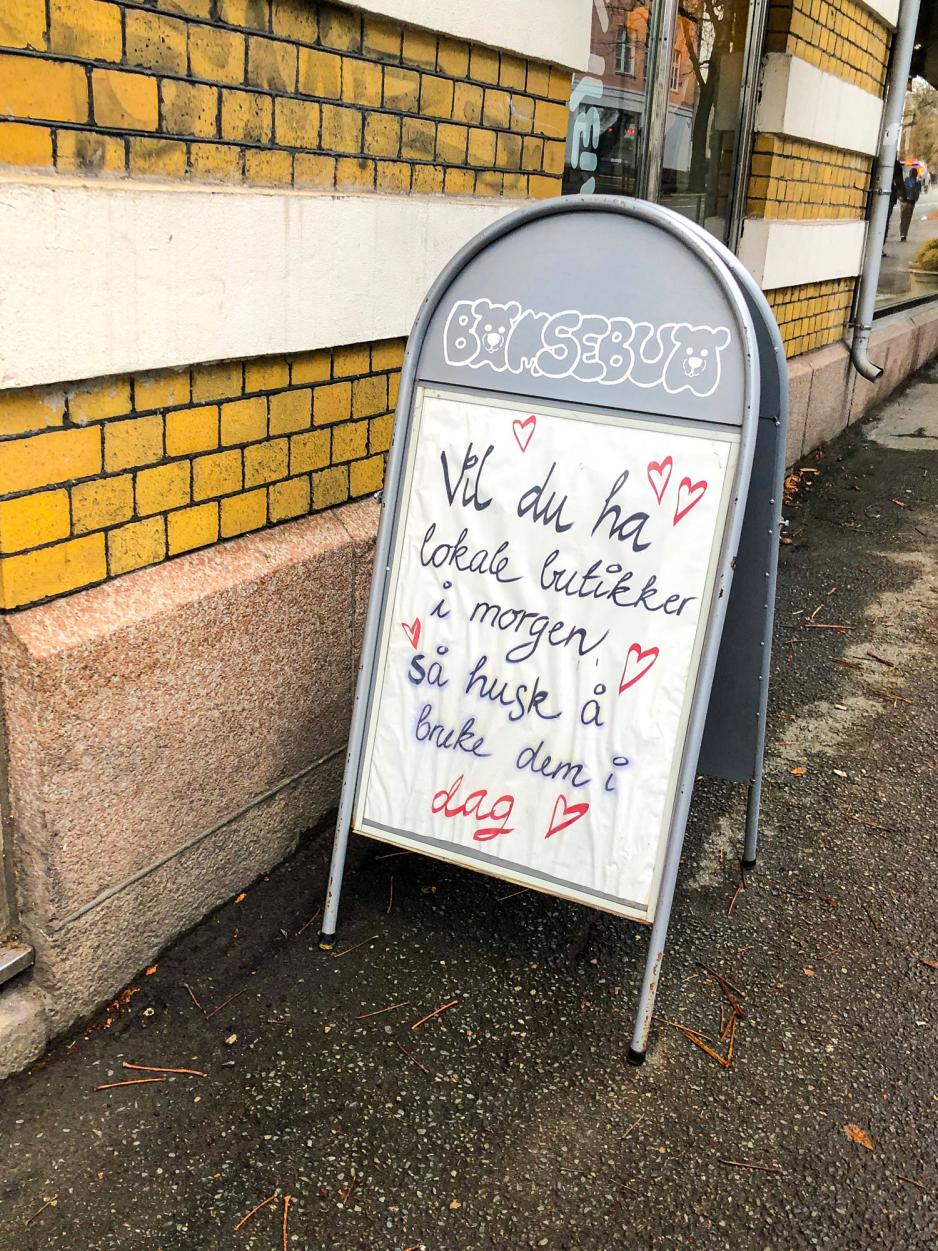 BAMSEBUA
Vil du ha
lokale butikker
i morgen,
så husk å
bruke dem i
dag